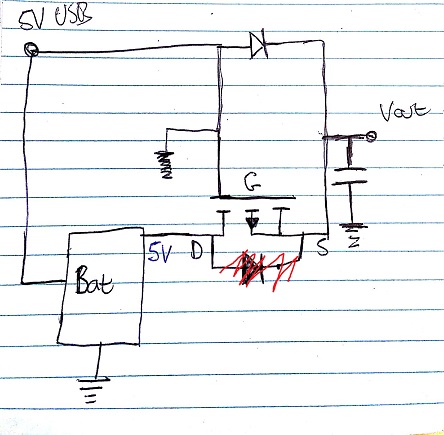 5V USB
Vout
G
5V D S
Bat